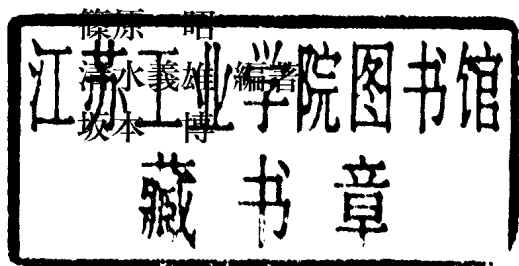 篠原 昭
清水義雄 編著
坂本 博
江苏工业学院图书馆
藏书章